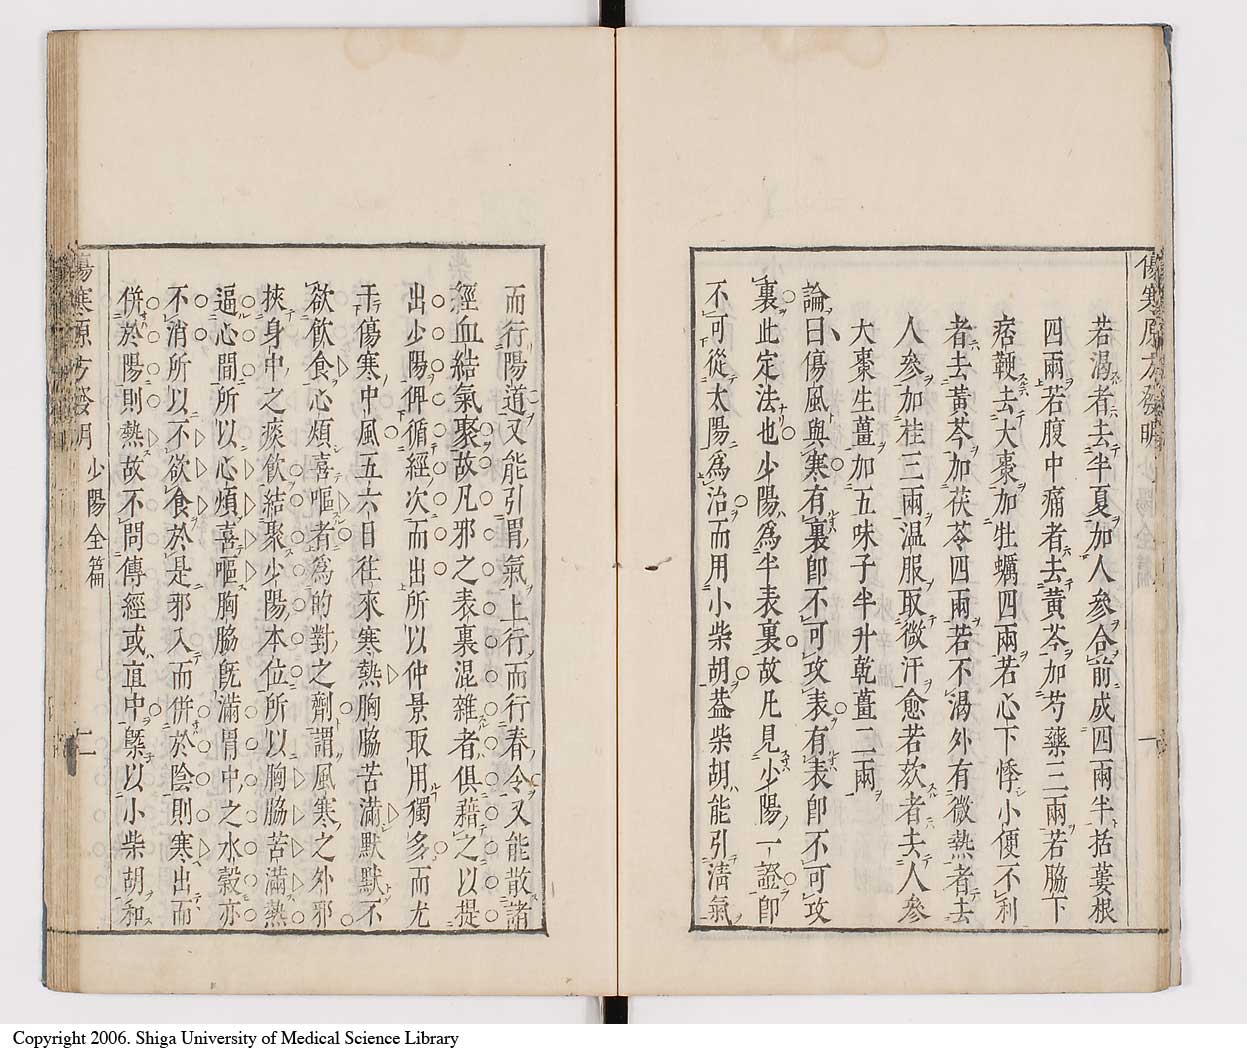 若渴者去半夏加人參合前成四兩半括蔞根
四兩若腹中痛者去黃芩加芍藥三兩若脇下
痞鞕去大棗加牡蠣四兩若心下悸小便不利
者去黃芩加茯苓四兩若不渴外有微熱者去
人參加桂三兩溫服取微汗愈若欬者去人參
大棗生薑加五味子半升乾薑二兩
論曰傷風與寒有裏卽不可攻表有表卽不可攻
裏此定法也少陽為半表裏故凡見少陽一證卽
不可從太陽為治而用小柴胡葢柴胡能引清氣
而行陽道又能引胃氣上行而行春令又能散諸
經血結氣聚故凡邪之表裏混雜者俱藉之以提
出少陽俾循經次而出所以仲景取用獨多而尤
于傷寒中風五六日往來寒熱胸脇苦滿默默不
欲飲食心煩喜嘔者為的對之劑謂風寒之外邪
挾身中之痰飲結聚少陽本位所以胸脇苦滿熱
逼心間所以心煩喜嘔胸脇旣滿胃中之水穀亦
不消所以不欲食於是邪入而併於陰則寒出而
併於陽則熱故不問傳經或直中槩以小柴胡和
傷寒原方發明 少陽全篇 二
Copyright 2006. Shiga University of Medical Science Library